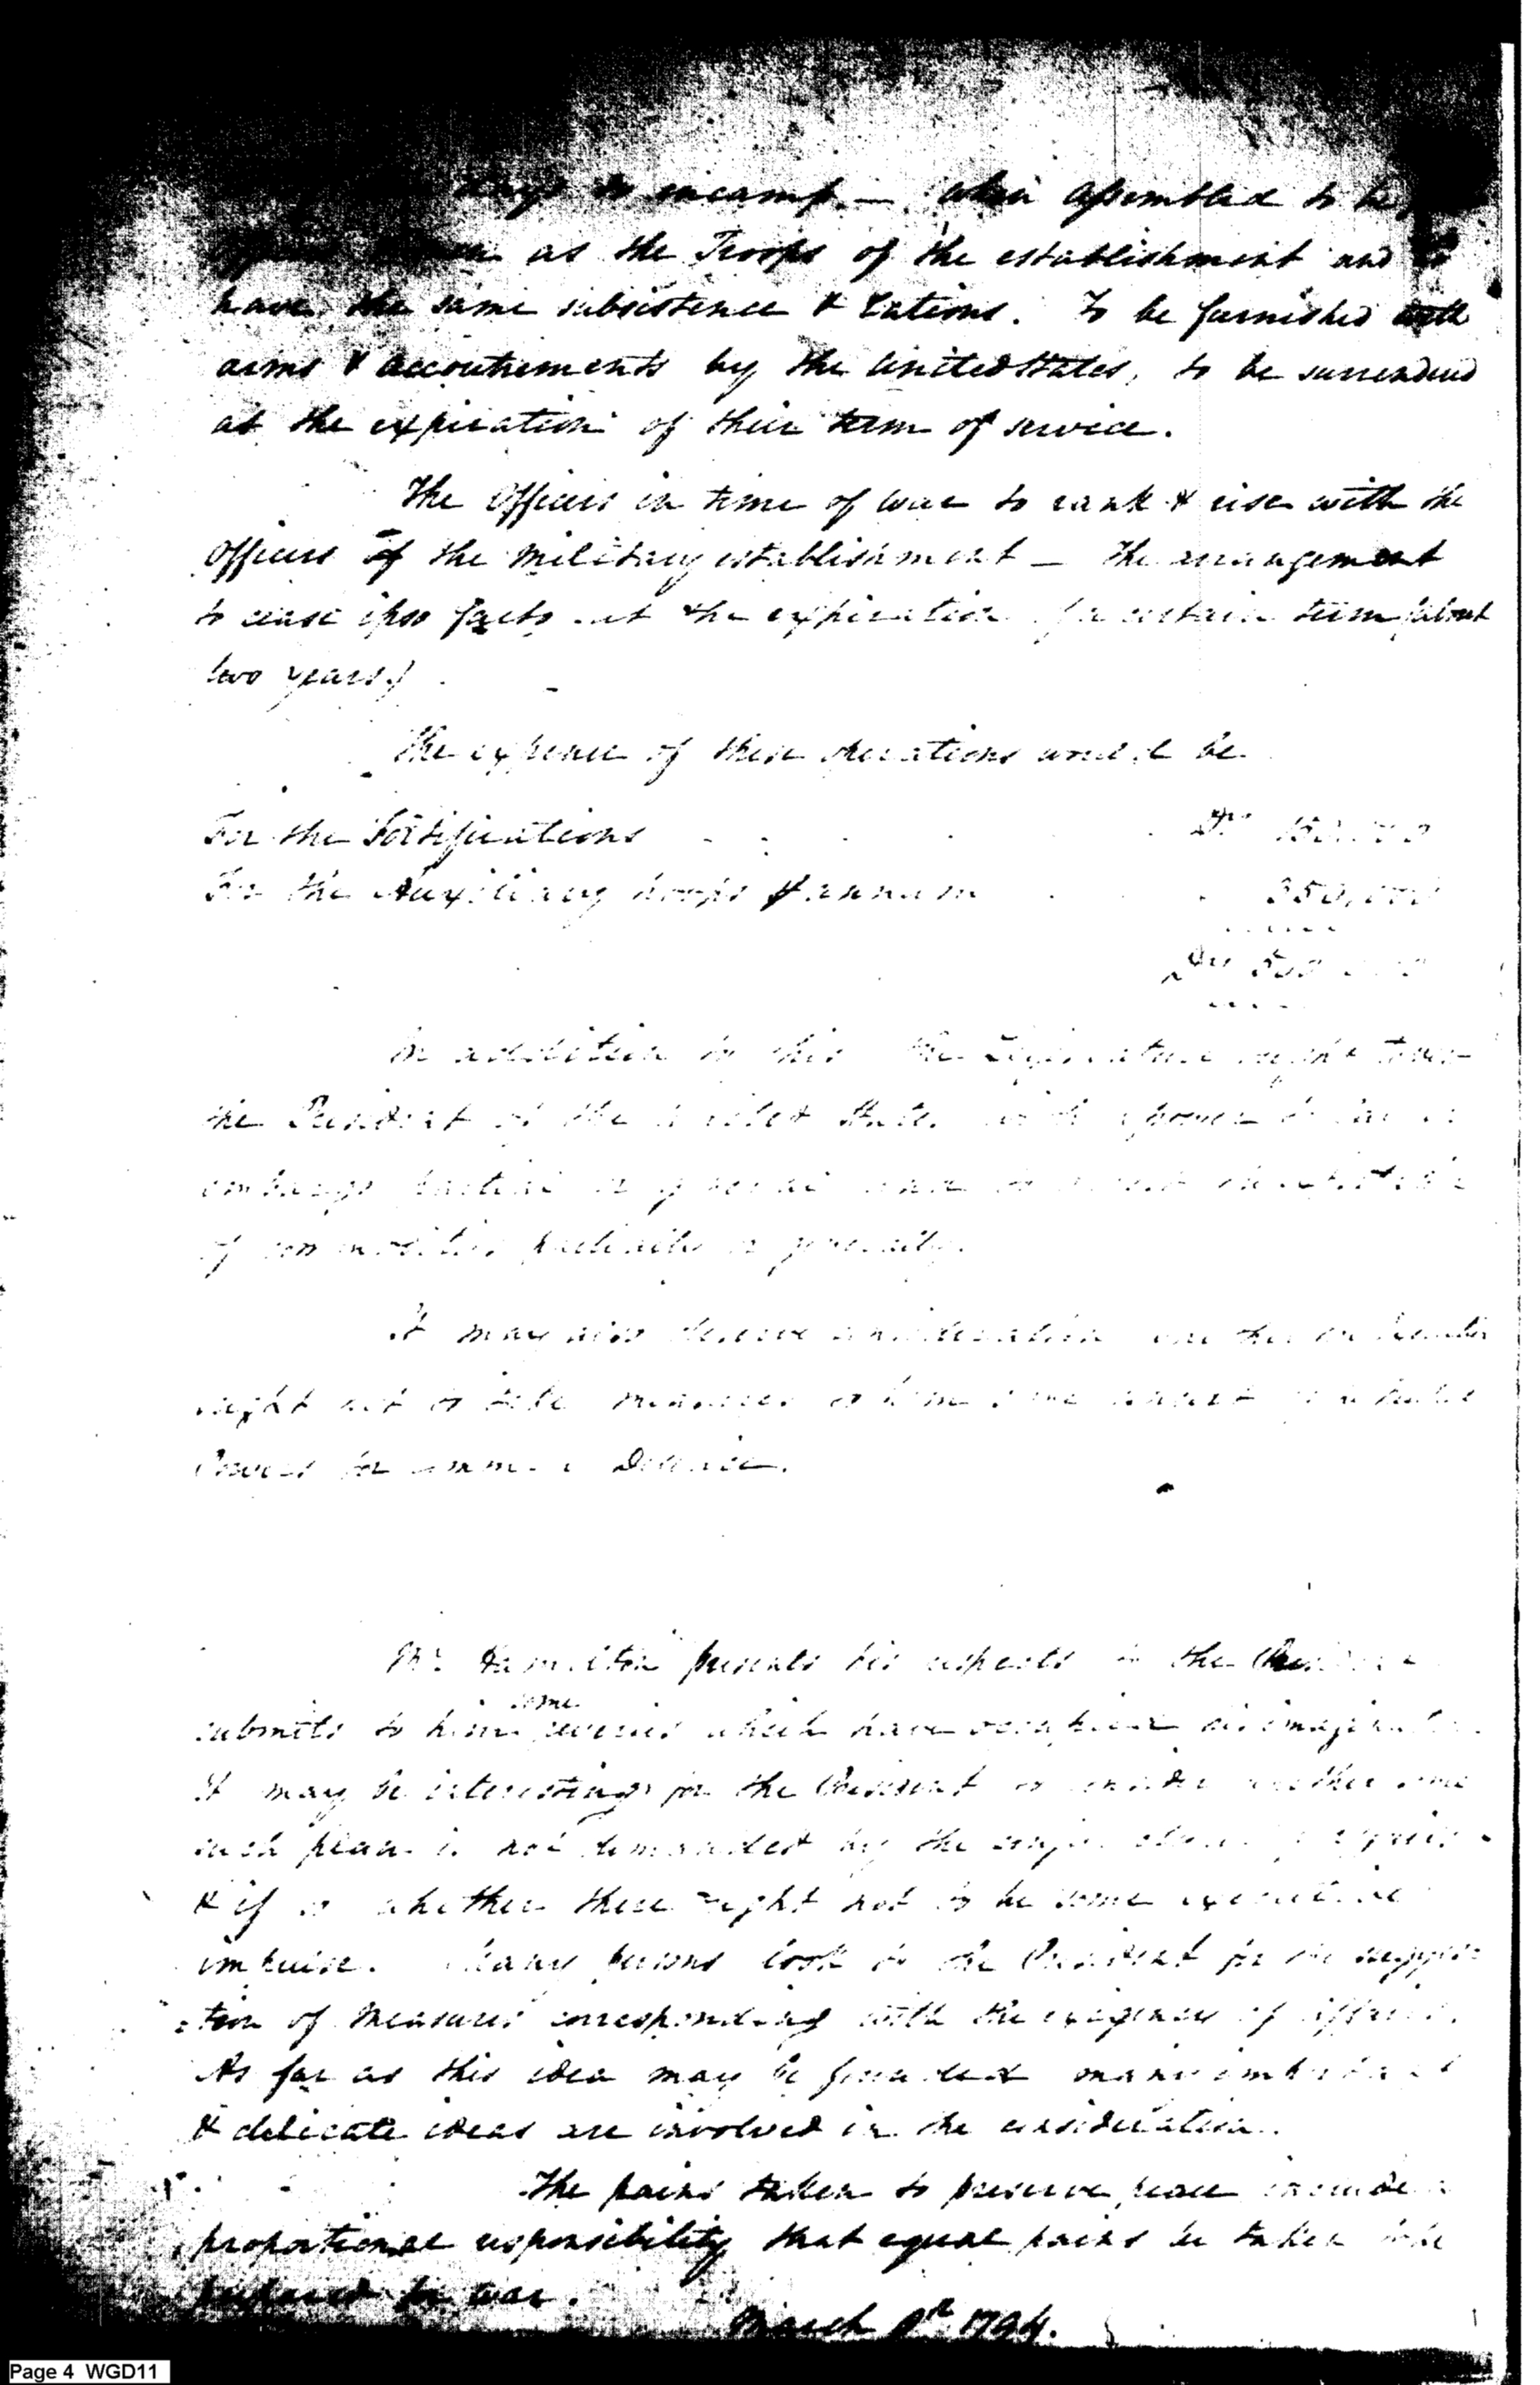 days to encamp — When assembled to be
as the Troops of the establishment and to
have the same subsistence & Rations. To be furnished with
arms & accoutrements by the United States, to be surrendered
at the expiration of their term of service.
The Officers in time of war to rank & rise with the
Officers of the Military establishment — The arrangement
to cease ipso facto at the expiration of a certain term (about
two years)
The expence of these operations would be
For the Fortifications Drs 150.000
For the Auxiliary troops ⅌ annum 350,000
Drs 500
In addition to this the Legislature ought to
the President of the United States with a power to lay an
embargo partial or general and to arrest the exportation
of commodities partially or generally.
It may also deserve consideration whether the Executive
ought not to take measures to form some concert
Powers for common Defence.
Mr. Hamilton presents his respects to the
submits to him some reveries which have occupied his imagination
It may be interesting for the President to consider whether some
such plan is not demanded by the conjuncture of affairs
& if so whether there ought not to be some executive
impulse. Many persons look to the President for the sugges
-tion of measures corresponding with the exigency of affairs.
As far as this idea may be founded many important
& delicate ideas are involved in the consideration.
The pains taken to preserve peace include a
proportional responsibility that equal pains be taken to be
prepared for war.
March 8th 1794.
Page 4 WGD11